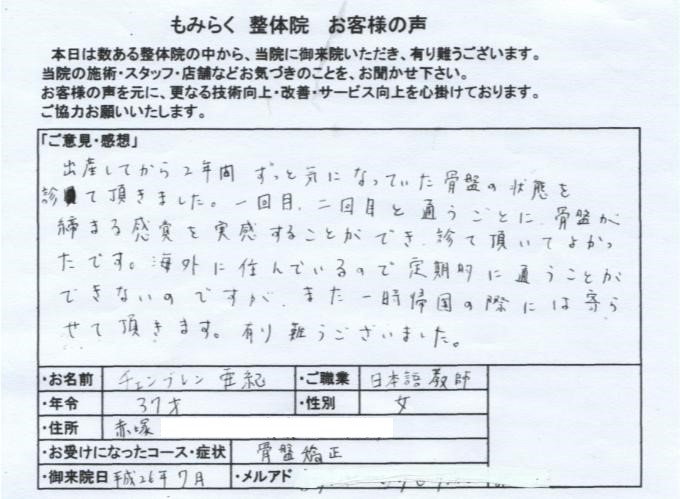 もみらく 整体院 お客様の声
本日は数ある整体院の中から、当院に御来院いただき、有り難うございます。
当院の施術・スタッフ・店舗などお気づきのことを、お聞かせ下さい。
お客様の声を元に、更なる技術向上・改善・サービス向上を心掛けております。
ご協力お願いいたします。
「ご意見・感想」
出産してから2年間 ずっと気になっていた骨盤の状態を
診て頂きました。一回目、二回目と通うごとに、骨盤が
締まる感覚を実感することができ、診て頂いてよかっ
たです。海外に住んでいるので定期的に通うことが
できないのですが、また一時帰国の際には寄ら
せて頂きます。有り難うございました。
・お名前 チェンブレン 亜紀 ・ご職業 日本語教師
・年令 37才 ・性別 女
・住所 赤塚
・お受けになったコース・症状 骨盤矯正
・御来院日 平成26年7月 ・メルアド